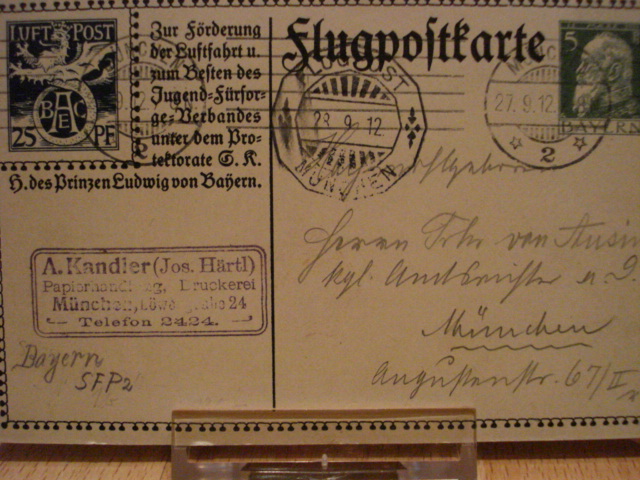 LUFT POST
BAEC
25 PF
Zur Förderung
der Luftfahrt u.
zum Besten des
Jugend-Fürsor-
ge-Verbandes
unter dem Pro-
tektorate S. K.
H. des Prinzen Ludwig von Bayern.
Flugpostkarte
FLUGPOST
28 9. 12.
MÜNCHEN
27. 9. 12.
2
5
BAYERN
Herrn von
kgl. Amtsrichter a. D.
München
Augustenstr. 67/II
A. Kandler (Jos. Härtl)
Papierhandlung, Druckerei
München, 24
Telefon 2424.
Bayern
SFP2